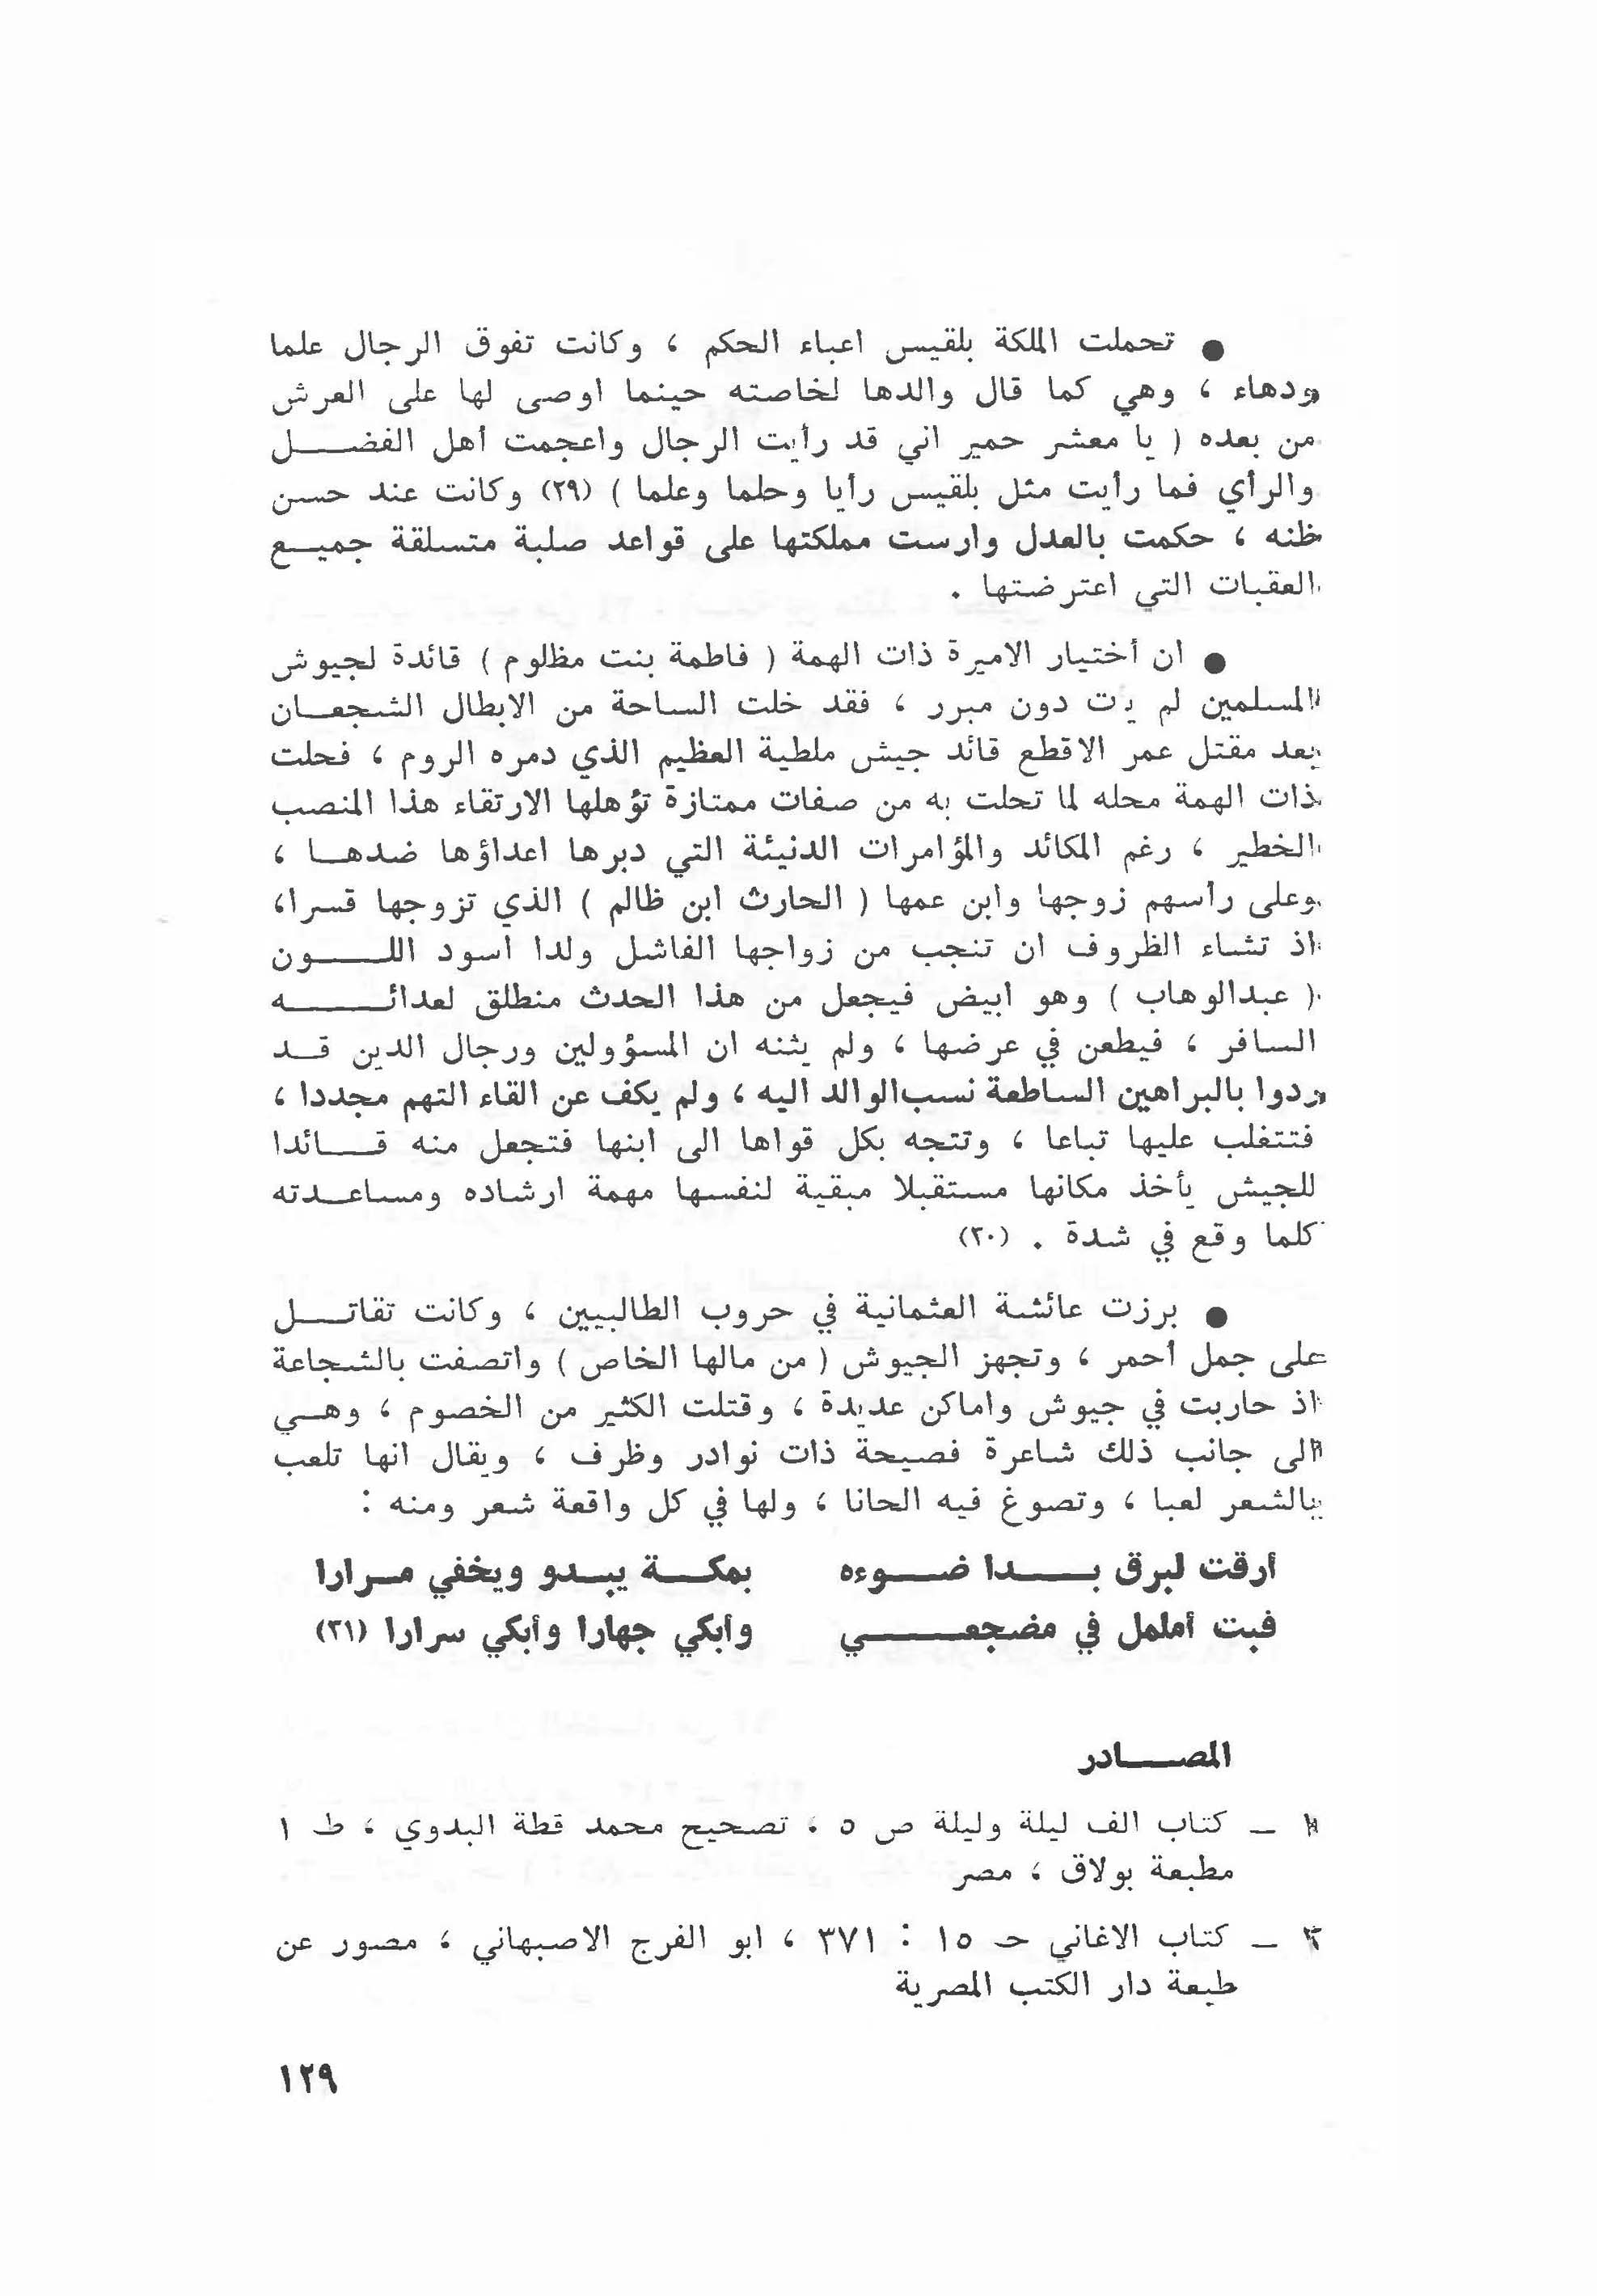 ● تحملت الملكة بلقيس اعباء الحكم ، وكانت تفوق الرجال علما
ودهاء ، وهي كما قال والدها لخاصته حينما اوصى لها على العرش
من بعده ( يا معشر حمير اني قد رأيت الرجال واعجمت أهل الفضل
والرأي فما رأيت مثل بلقيس رأيا وحلما وعلما ) (٢٩) وكانت عند حسن
ظنه ، حكمت بالعدل وارست مملكتها على قواعد صلبة متسلقة جميع
العقبات التي اعترضتها .
● ان أختيار الاميرة ذات الهمة ( فاطمة بنت مظلوم ) قائدة لجيوش
المسلمين لم يأت دون مبرر ، فقد خلت الساحة من الابطال الشجعان
بعد مقتل عمر الاقطع قائد جيش ملطية العظيم الذي دمره الروم ، فحلت
ذات الهمة محله لما تحلت به من صفات ممتازة تؤهلها الارتقاء هذا المنصب
الخطير ، رغم المكائد والمؤامرات الدنيئة التي دبرها اعداؤها ضدها ،
وعلى رأسهم زوجها وابن عمها ( الحارث ابن ظالم ) الذي تزوجها قسرا،
اذ تشاء الظروف ان تنجب من زواجها الفاشل ولدا اسود اللون
( عبدالوهاب ) وهو ابيض فيجعل من هذا الحدث منطلق لعدائه
السافر ، فيطعن في عرضها ، ولم يثنه ان المسؤولين ورجال الدين قد
ردوا بالبراهين الساطعة نسب الوالد اليه ، ولم يكف عن القاء التهم مجددا ،
فتتغلب عليها تباعا ، وتتجه بكل قواها الى ابنها فتجعل منه قائدا
للجيش يأخذ مكانها مستقبلا مبقية لنفسها مهمة ارشاده ومساعدته
كلما وقع في شدة . (٣٠)
● برزت عائشة العثمانية في حروب الطالبيين ، وكانت تقاتل
على جمل أحمر ، وتجهز الجيوش ( من مالها الخاص ) واتصفت بالشجاعة
اذ حاربت في جيوش واماكن عديدة ، وقتلت الكثير من الخصوم ، وهي
الى جانب ذلك شاعرة فصيحة ذات نوادر وظرف ، ويقال انها تلعب
بالشعر لعبا ، وتصوغ فيه الحانا ، ولها في كل واقعة شعر ومنه :
أرقت لبرق بدا ضوءه بمكة يبدو ويخفي مرارا
فبت أململ في مضجعي وأبكي جهارا وأبكي سرارا (٣١)
المصادر
١ ـ كتاب الف ليلة وليلة ص ٥ ، تصحيح محمد قطة البدوي ، ط ١
مطبعة بولاق ، مصر
٢ ـ كتاب الاغاني حـ ١٥ : ٣٧١ ، ابو الفرج الاصبهاني ، مصور عن
طبعة دار الكتب المصرية
١٢٩